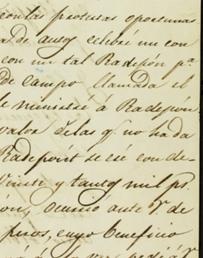 con las protestas oportunas
a de autos celebré un con
con un tal Radepon pª
de campo llamada el
le ministré a Radepon
valor de las qᵉ no ha da
Radepont se cré con de-
Veinte y tantos mil ps.
ocurrio ante V. de
pesos, cuyo beneficio